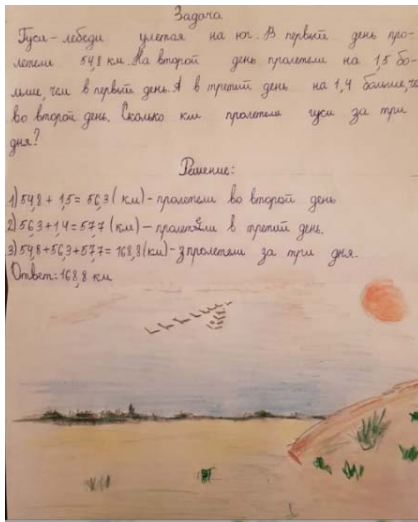 Задача
Гуси-лебеди улетая на юг. В первый день про-
летели 54,8 км. На второй день пролетели на 1,5 бо-
льше, чем в первый день. А в третий день на 1,4 больше, че
во второй день. Сколько км пролетели гуси за три
дня?
Решение:
1) 54,8 + 1,5 = 56,3 (км) - пролетели во второй день
2) 56,3 + 1,4 = 57,7 (км) - пролетели в третий день.
3) 54,8 + 56,3 + 57,7 = 168,8 (км) - пролетели за три дня.
Ответ: 168,8 км